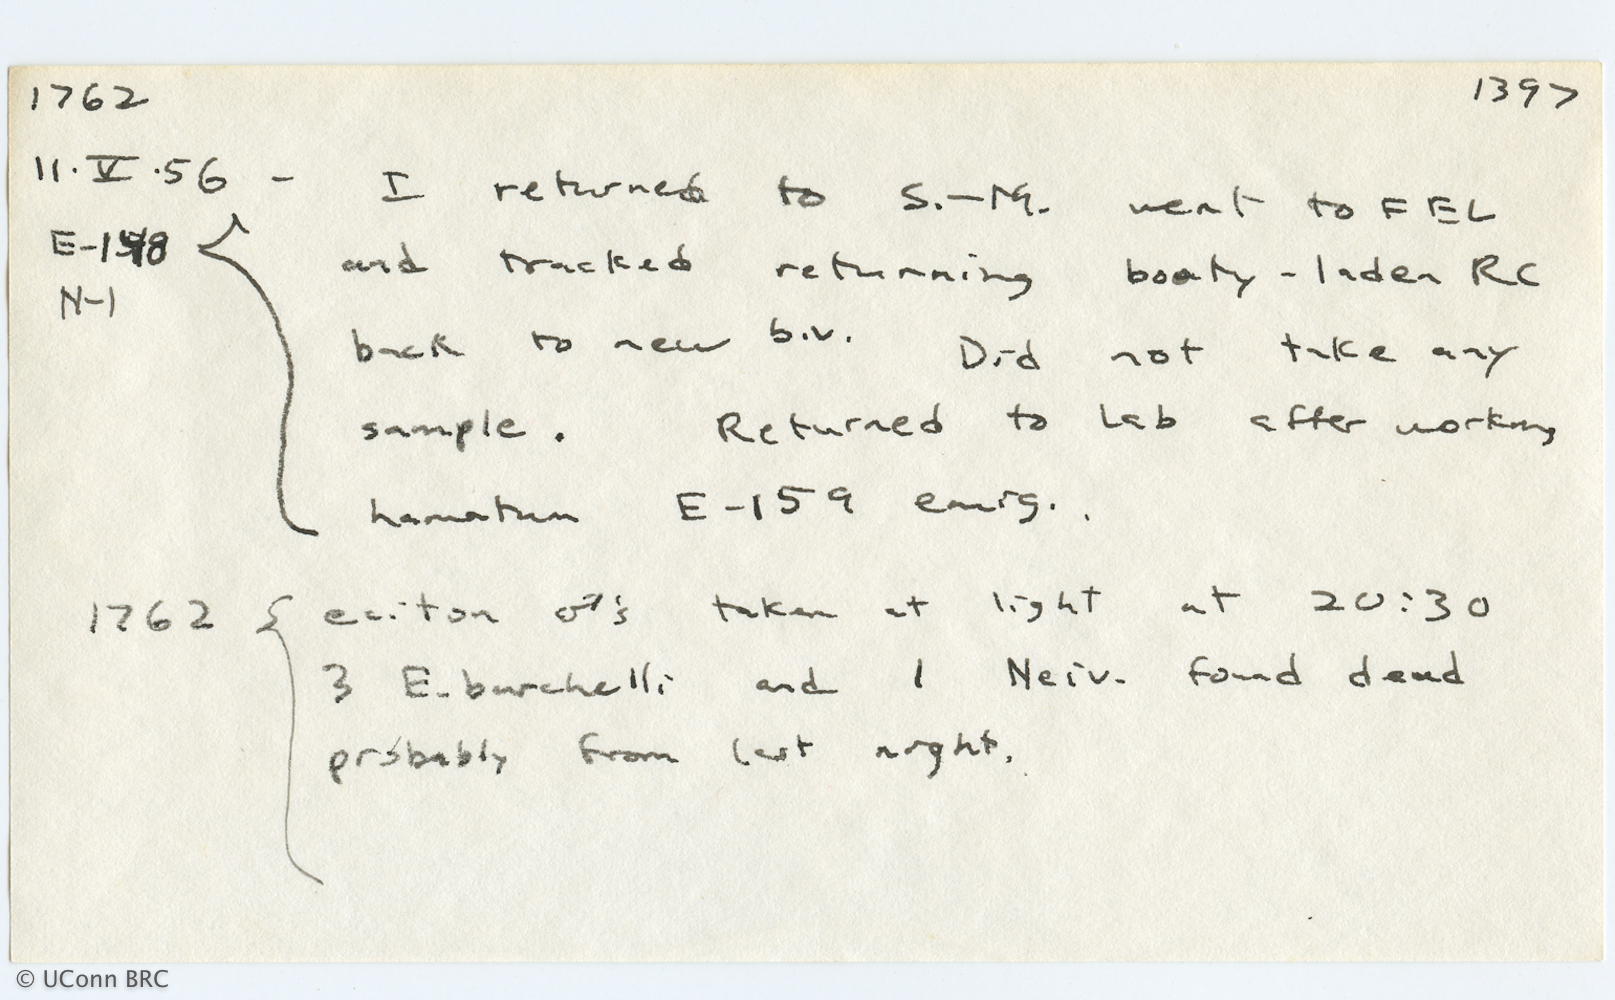 1762 1397
11·V·56 - I returned to S.-M. went to FEL
E-148 and tracked returning booty-laden RC
N-1 back to new b.v. Did not take any
sample. Returned to Lab after working
hamatum E-159 emig..
1762 { eciton ♂'s taken at light at 20:30
3 E. burchelli and 1 Neiv. found dead
probably from last night.
© UConn BRC